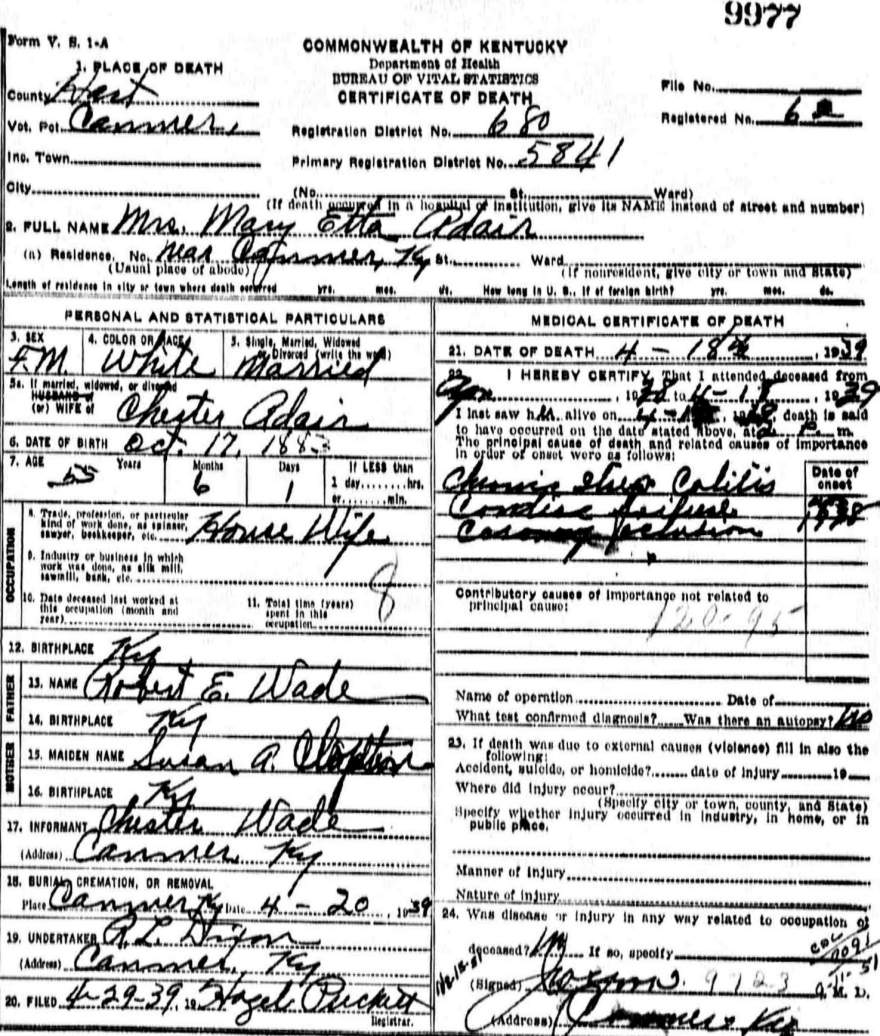 9977
Form V. S. 1-A
COMMONWEALTH OF KENTUCKY
Department of Health
BUREAU OF VITAL STATISTICS
CERTIFICATE OF DEATH
1. PLACE OF DEATH
County Hart
Vot. Pct. Canmer,
Inc. Town
City
Registration District No. 680
Primary Registration District No. 5841
File No.
Registered No. 6
(No. St. Ward)
(If death occurred in a hospital or institution, give its NAME instead of street and number)
2. FULL NAME Mrs. Mary Etta Adair
(a) Residence, No. near Canmer, Ky St. Ward
(Usual place of abode) (If nonresident, give city or town and State)
Length of residence in city or town where death occurred yrs. mos. ds. How long in U. S., if of foreign birth? yrs. mos. ds.
PERSONAL AND STATISTICAL PARTICULARS
3. SEX 4. COLOR OR RACE 5. Single, Married, Widowed
or Divorced (write the word)
F.M. White Married
5a. If married, widowed, or divorced
HUSBAND of
(or) WIFE of Chester Adair
6. DATE OF BIRTH Oct. 17, 1883
7. AGE 55 Years 6 Months 1 Days If LESS than
1 day hrs.
or min.
OCCUPATION
8. Trade, profession, or particular
kind of work done, as spinner,
sawyer, bookkeeper, etc. House Wife
9. Industry or business in which
work was done, as silk mill,
sawmill, bank, etc.
8
10. Date deceased last worked at
this occupation (month and
year)
11. Total time (years)
spent in this
occupation
12. BIRTHPLACE Ky
FATHER
13. NAME Robert E. Wade
14. BIRTHPLACE Ky
MOTHER
15. MAIDEN NAME Susan A. Clopton
16. BIRTHPLACE Ky
17. INFORMANT Chester Wade
(Address) Canmer, Ky
18. BURIAL, CREMATION, OR REMOVAL
Place Canmer Ky Date 4-20, 1939
19. UNDERTAKER R.L. Dixon
(Address) Canmer, Ky
20. FILED 4-29-39, 19 Hazel Puckett
Registrar.
MEDICAL CERTIFICATE OF DEATH
21. DATE OF DEATH 4-18, 1939
22. I HEREBY CERTIFY, That I attended deceased from
, 19 to 4-18, 1939
I last saw h alive on 4- , 19 death is said
to have occurred on the date stated above, at P. m.
The principal cause of death and related causes of importance
in order of onset were as follows:
Date of
onset
Chronic Strep Colitis
Cardiac failure 1938
Coronary occlusion
Contributory causes of importance not related to
principal cause:
120-95
Name of operation Date of
What test confirmed diagnosis? Was there an autopsy? No
23. If death was due to external causes (violence) fill in also the
following:
Accident, suicide, or homicide? date of injury 19
Where did injury occur?
(Specify city or town, county, and State)
Specify whether injury occurred in industry, in home, or in
public place.
Manner of injury
Nature of injury
24. Was disease or injury in any way related to occupation of
deceased? No If so, specify
(Signed) 9723 M. D.
(Address) Canmer Ky